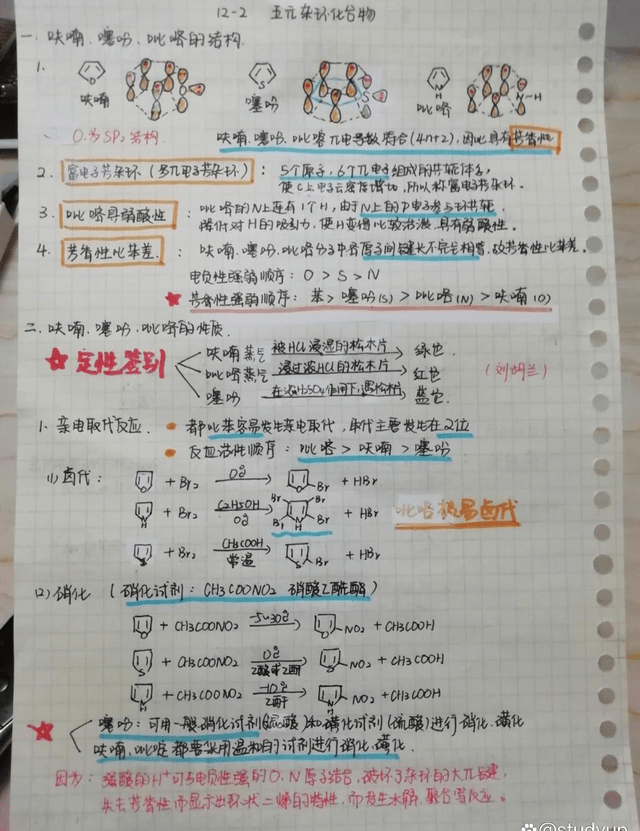 12-2 五元杂环化合物
一. 呋喃、噻吩、吡咯的结构.
1.
O
呋喃
S
噻吩
N
H
吡咯
N-H
O为SP2结构
呋喃、噻吩、吡咯π电子数符合(4n+2), 因此具有芳香性
2. 富电子芳杂环 (多π电子芳杂环) : 5个原子, 6个π电子组成的共轭体系,
使C上电子云密度增加, 所以称富电子芳杂环.
3. 吡咯具弱酸性 : 吡咯的N上连有1个H, 由于N上的P电子参与环共轭,
对H的吸引力, 使H变得比较活泼, 具有弱酸性.
4. 芳香性比苯差. : 呋喃、噻吩、吡咯分子中各原子间键长不完全相等, 故芳香性比苯差.
电负性强弱顺序: O > S > N
★ 芳香性强弱顺序: 苯 > 噻吩(S) > 吡咯(N) > 呋喃(O)
二. 呋喃、噻吩、吡咯的性质.
★ 定性鉴别
呋喃蒸气 被HCl浸湿的松木片 → 绿色.
吡咯蒸气 浸过浓HCl的松木片 → 红色 (刘胡兰)
噻吩 在浓H2SO4作用下, 遇松 → 蓝色.
1. 亲电取代反应. • 都比苯容易发生亲电取代, 取代主要发生在2位
• 反应活性顺序: 吡咯 > 呋喃 > 噻吩
(1) 卤代:
O + Br2 0℃ → O Br + HBr
N H + Br2 C2H5OH 0℃ → Br Br Br Br N H + HBr 吡咯极易卤代
S + Br2 CH3COOH 常温 → S Br + HBr
(2) 硝化 (硝化试剂: CH3COONO2 硝酸乙酰酯)
O + CH3COONO2 -5~30℃ → O NO2 + CH3COOH
S + CH3COONO2 0℃ → S NO2 + CH3COOH
N H + CH3COONO2 -10℃ 乙酐 → N H NO2 + CH3COOH
★ 噻吩: 可用一般硝化试剂(硝酸)和磺化试剂(硫酸)进行硝化、磺化
呋喃、吡咯都要采用温和的试剂进行硝化、磺化.
因为: 强酸的H⁺可与电负性强的O、N原子结合, 破坏了杂环的大π键,
失去芳香性而显示出环状二烯的特性, 而发生水解、聚合等反应。
@studyun